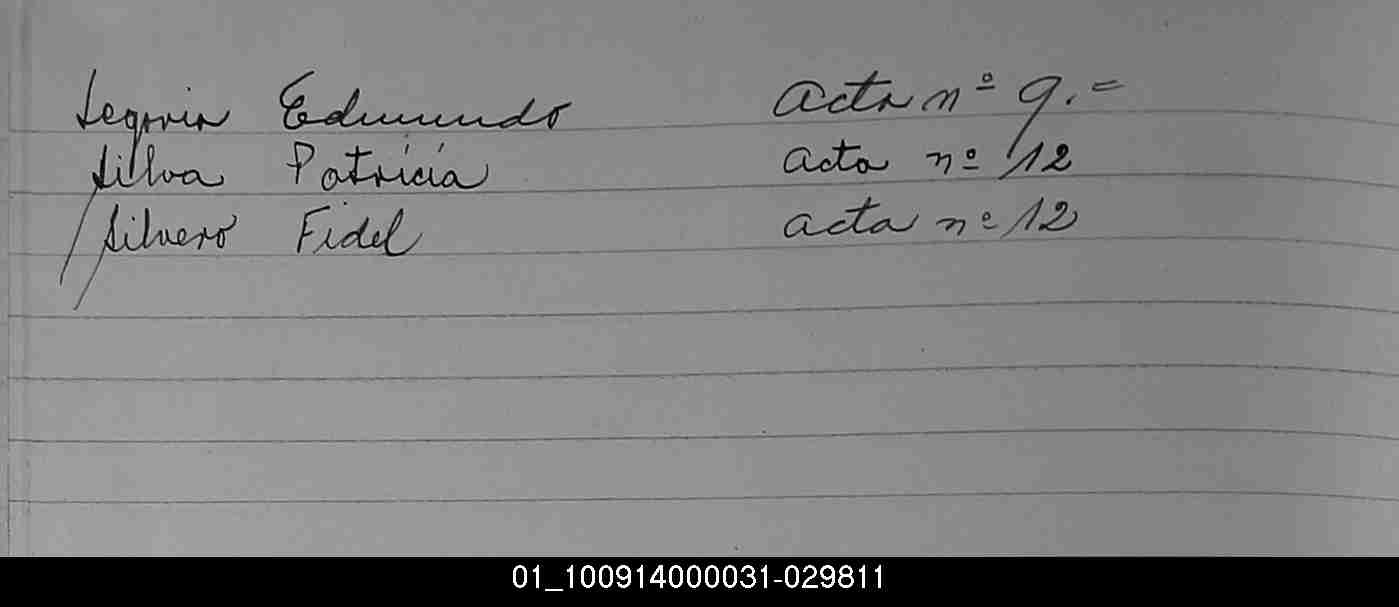 Segovia Edmundo Acta nº 9.=
Silva Patricia acta nº 12
Silvero Fidel acta nº 12
01_100914000031-029811